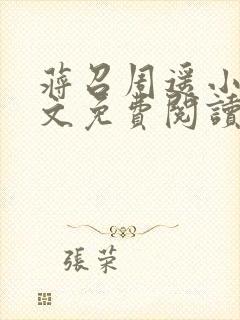 蔣召周遥小
文免費閱讀
張荣